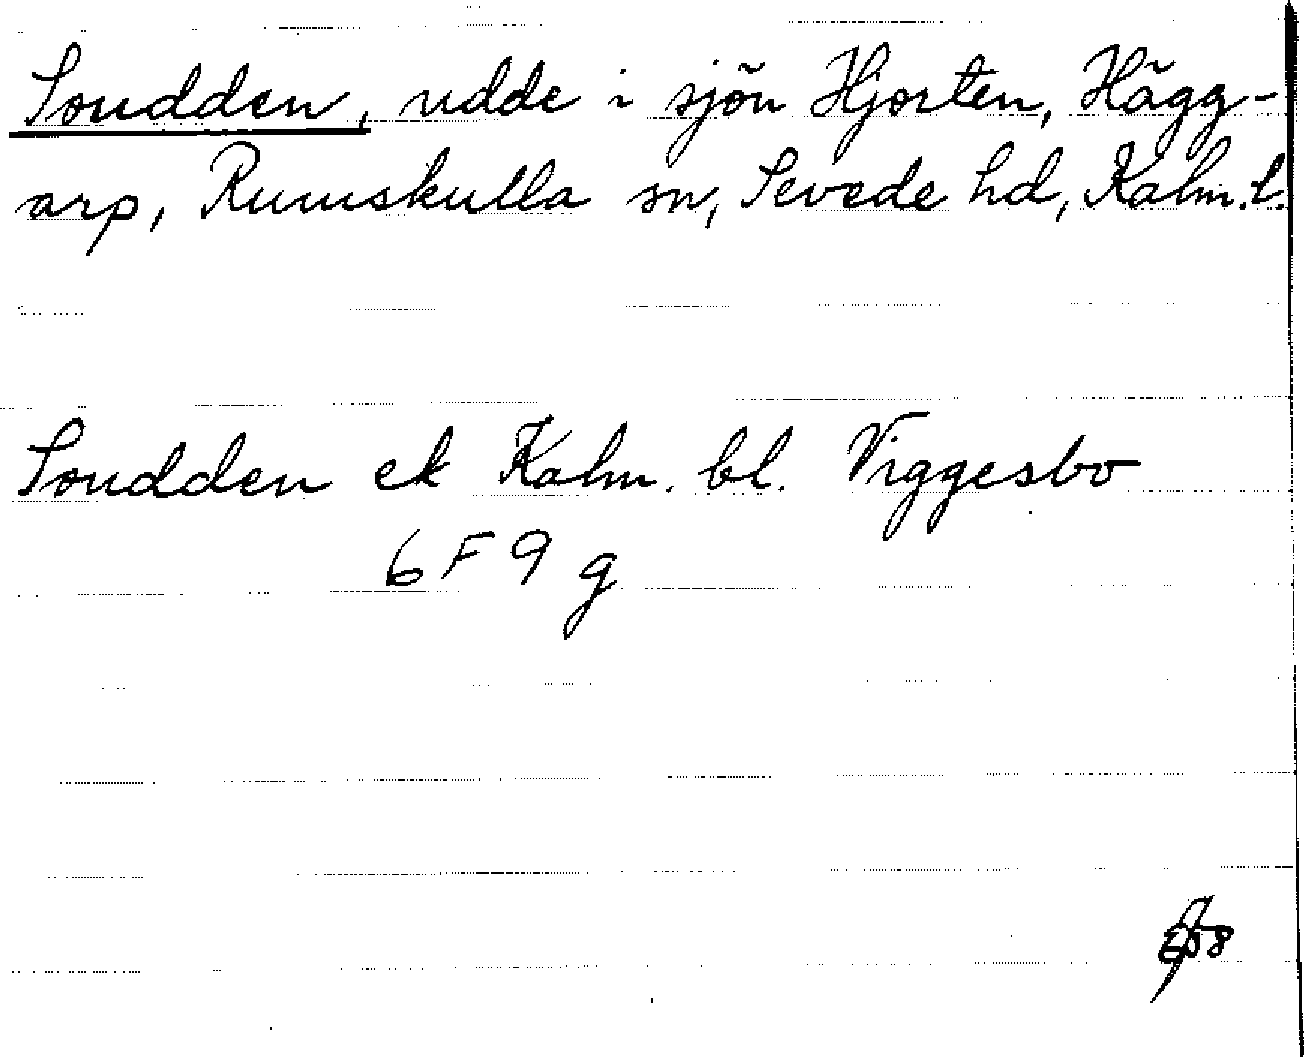 Soudden, udde i sjön Hjorten, Hägg-
arp, Rumskulla sn, Sevede hd, Kalm. l.
Soudden ek Kalm. bl. Viggesbo
6 F 9 g